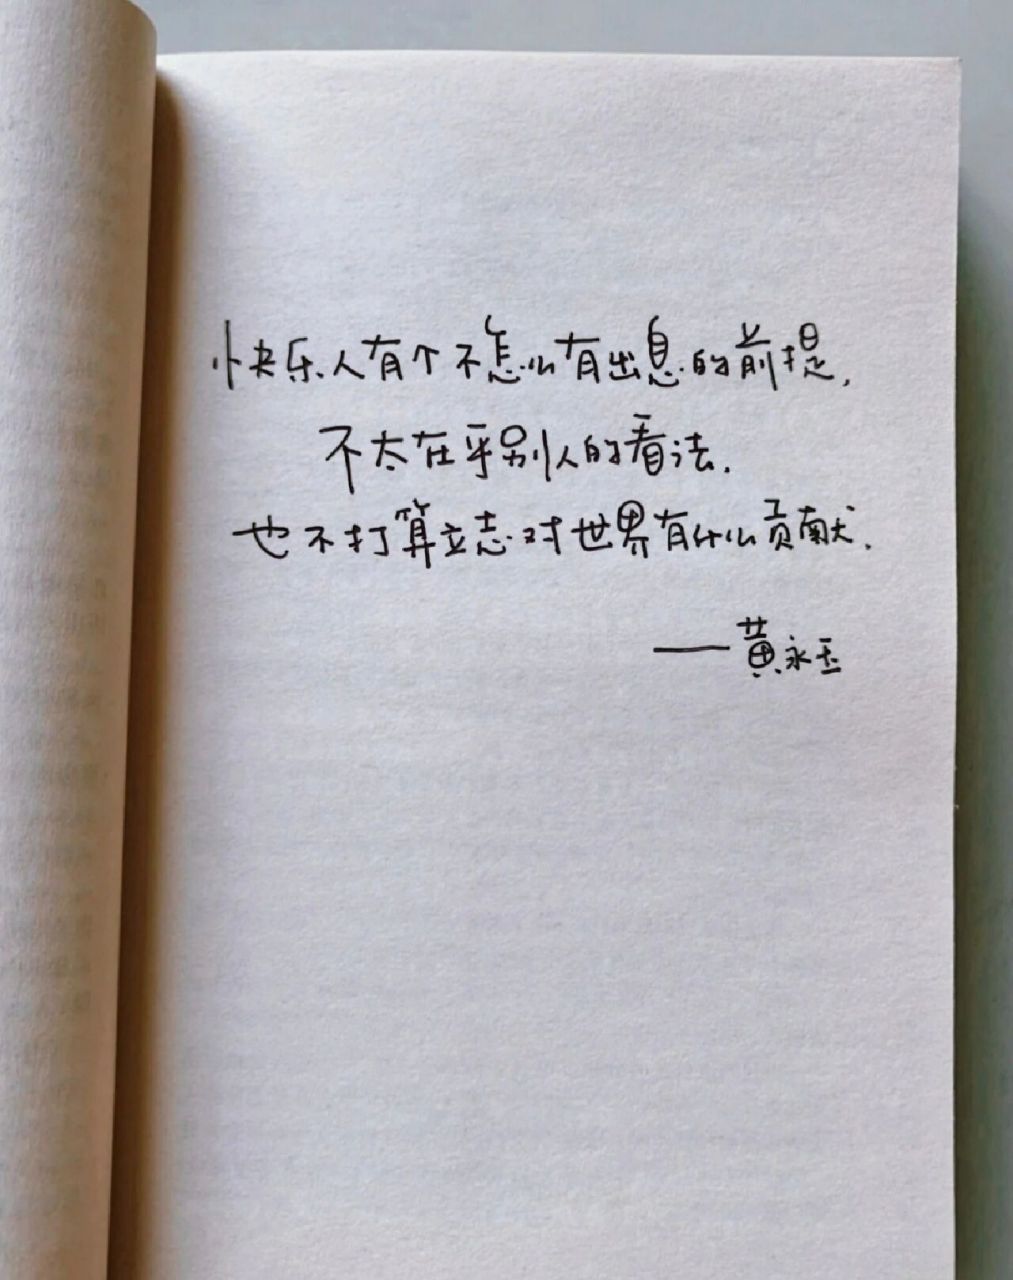 快乐人有个不怎么有出息的前提,
不太在乎别人的看法.
也不打算立志对世界有什么贡献.
——黄永玉